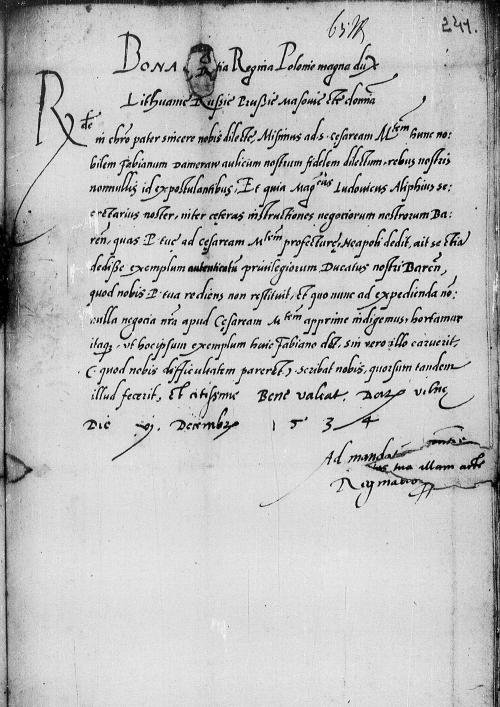 65
241.
BONA gratia Regina Polonie magna dux
Lithuanie Russie Prussie Masovie etc domina
Rde
in chro pater sincere nobis dilecte, Misimus ad s. cesaream Mtem hunc no:
bilem Fabianum Dameraw aulicum nostrum fidelem dilectum, rebus nostris
nonnullis id expostulantibus, Et quia Magcus Ludovicus Aliphius se:
cretarius noster, inter ceteras instructiones negociorum nostrorum Ba:
ren, quas P. tue ad cesaream Mtem profecture, Neapoli dedit, ait se etia
dedisse exemplum autenticatu privilegiorum Ducatus nostri Baren,
quod nobis P. tua rediens non restituit, et quo nunc ad expedienda no:
nulla negocia nra apud Cesaream Mtem apprime indigemus, hortamur
itaq, ut hoc ipsum exemplum huic Fabiano det, sin vero illo caruerit,
(quod nobis difficultatem pareret) scribat nobis, quorsum tandem
illud fecerit, Et citissime Bene valeat. Dat Vilne
Die 9. Decembr 1534
Ad mandatu
Regmaior